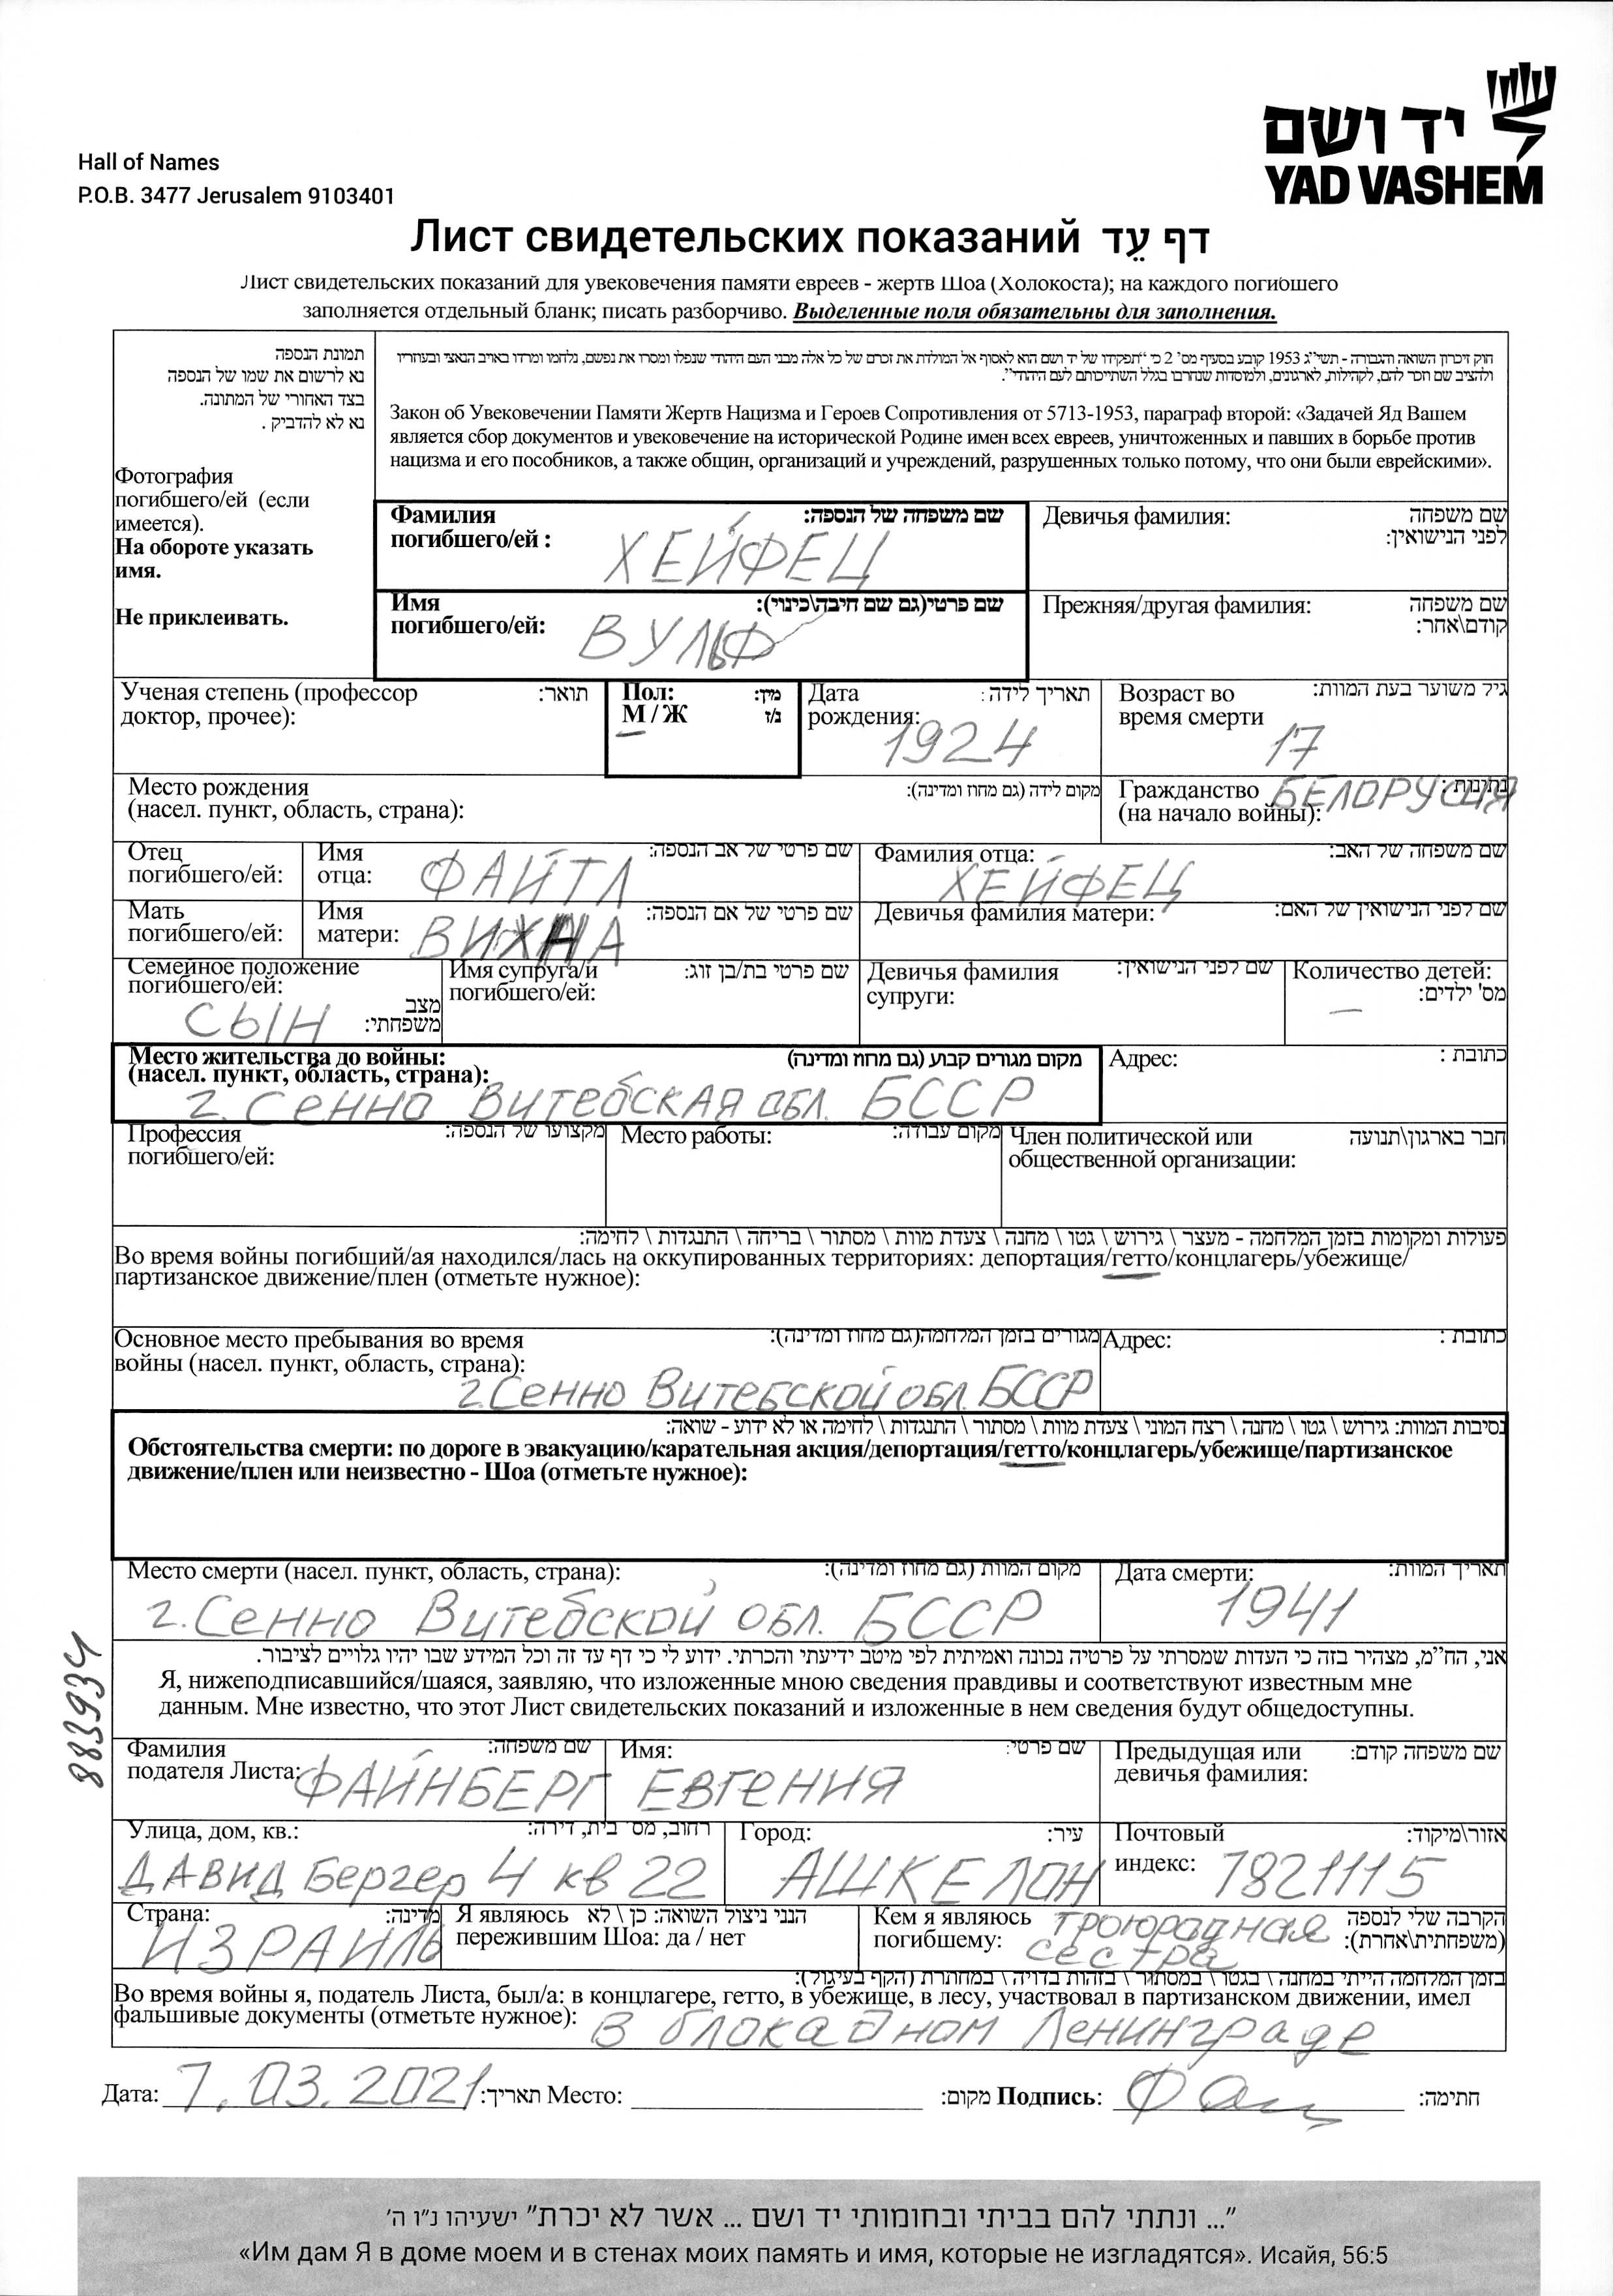 יד ושם
YAD VASHEM
Hall of Names
P.O.B. 3477 Jerusalem 9103401
Лист свидетельских показаний דף עֵד
Лист свидетельских показаний для увековечения памяти евреев - жертв Шоа (Холокоста); на каждого погибшего
заполняется отдельный бланк; писать разборчиво. Выделенные поля обязательны для заполнения.
תמונת הנספה
נא לרשום את שמו של הנספה
בצד האחורי של המתונה.
נא לא להדביק .
Фотография
погибшего/ей (если
имеется).
На обороте указать
имя.
Не приклеивать.
חוק זיכרון השואה והגבורה - תשי"ג 1953 קובע בסעיף מס' 2 כי "תפקידו של יד ושם הוא לאסוף אל המולדת את זכרם של כל אלה מבני העם היהודי שנפלו ומסרו את נפשם, נלחמו ומרדו באויב הנאצי ובעוזריו
ולהציב שם וזכר להם, לקהילות, לארגונים, ולמוסדות שנחרבו בגלל השתייכותם לעם היהודי".
Закон об Увековечении Памяти Жертв Нацизма и Героев Сопротивления от 5713-1953, параграф второй: «Задачей Яд Вашем
является сбор документов и увековечение на исторической Родине имен всех евреев, уничтоженных и павших в борьбе против
нацизма и его пособников, а также общин, организаций и учреждений, разрушенных только потому, что они были еврейскими».
Фамилия שם משפחה של הנספה:
погибшего/ей : ХЕЙФЕЦ
Девичья фамилия: שם משפחה
לפני הנישואין:
Имя שם פרטי(גם שם חיבה\כינוי):
погибшего/ей: ВУЛЬФ
Прежняя/другая фамилия: שם משפחה
קודם\אחר:
Ученая степень (профессор תואר:
доктор, прочее):
Пол: מין:
М / Ж ז/נ
Дата תאריך לידה :
рождения: 1924
Возраст во גיל משוער בעת המוות:
время смерти 17
Место рождения מקום לידה (גם מחוז ומדינה):
(насел. пункт, область, страна):
Гражданство נתינות : БЕЛОРУСЦИЯ
(на начало войны):
Отец
погибшего/ей:
Имя שם פרטי של אב הנספה:
отца: ФАЙТЛ
Фамилия отца: שם משפחה של האב:
ХЕЙФЕЦ
Мать
погибшего/ей:
Имя שם פרטי של אם הנספה:
матери: ВИХНА
Девичья фамилия матери: שם לפני הנישואין של האם:
Семейное положение
погибшего/ей:
מצב
משפחתי:
СЫН
Имя супруга/и שם פרטי בת/בן זוג:
погибшего/ей:
Девичья фамилия שם לפני הנישואין:
супруги:
Количество детей:
מס' ילדים:
—
Место жительства до войны: מקום מגורים קבוע (גם מחוז ומדינה)
(насел. пункт, область, страна):
г. Сенно Витебская обл. БССР
Адрес: כתובת :
Профессия מקצועו של הנספה:
погибшего/ей:
Место работы: מקום עבודה:
Член политической или חבר בארגון\תנועה
общественной организации:
פעולות ומקומות בזמן המלחמה - מעצר \ גירוש \ גטו \ מחנה \ צעדת מוות \ מסתור \ בריחה \ התנגדות \ לחימה:
Во время войны погибший/ая находился/лась на оккупированных территориях: депортация/гетто/концлагерь/убежище/
партизанское движение/плен (отметьте нужное):
Основное место пребывания во время מגורים בזמן המלחמה(גם מחוז ומדינה):
войны (насел. пункт, область, страна):
г. Сенно Витебской обл. БССР
Адрес: כתובת :
נסיבות המוות: גירוש \ גטו \ מחנה \ רצח המוני \ צעדת מוות \ מסתור \ התנגדות \ לחימה או לא ידוע - שואה:
Обстоятельства смерти: по дороге в эвакуацию/карательная акция/депортация/гетто/концлагерь/убежище/партизанское
движение/плен или неизвестно - Шоа (отметьте нужное):
Место смерти (насел. пункт, область, страна): מקום המוות (גם מחוז ומדינה):
г. Сенно Витебской обл. БССР
Дата смерти: תאריך המוות:
1941
883934
אני, הח"מ, מצהיר בזה כי העדות שמסרתי על פרטיה נכונה ואמיתית לפי מיטב ידיעתי והכרתי. ידוע לי כי דף עד זה וכל המידע שבו יהיו גלויים לציבור.
Я, нижеподписавшийся/шаяся, заявляю, что изложенные мною сведения правдивы и соответствуют известным мне
данным. Мне известно, что этот Лист свидетельских показаний и изложенные в нем сведения будут общедоступны.
Фамилия שם משפחה:
подателя Листа: ФАЙНБЕРГ
Имя: שם פרטי:
ЕВГЕНИЯ
Предыдущая или שם משפחה קודם:
девичья фамилия:
Улица, дом, кв.: רחוב, מס' בית, דירה:
ДАВИД Бергер 4 кв 22
Город: עיר:
АШКЕЛОН
Почтовый אזור\מיקוד:
индекс: 7821115
Страна: מדינה:
ИЗРАИЛЬ
Я являюсь הנני ניצול השואה: כן \ לא
пережившим Шоа: да / нет
Кем я являюсь הקרבה שלי לנספה
погибшему: (משפחתית\אחרת):
троюродная
сестра
בזמן המלחמה הייתי במחנה \ בגטו \ במסתור \ בזהות בדויה \ במחתרת (הקף בעיגול):
Во время войны я, податель Листа, был/а: в концлагере, гетто, в убежище, в лесу, участвовал в партизанском движении, имел
фальшивые документы (отметьте нужное): в блокадном Ленинграде
Дата: 7.03.2021 תאריך: Место: מקום: Подпись: חתימה:
"... ונתתי להם בביתי ובחומותי יד ושם ... אשר לא יכרת" ישעיהו נ"ו ה'
«Им дам Я в доме моем и в стенах моих память и имя, которые не изгладятся». Исайя, 56:5